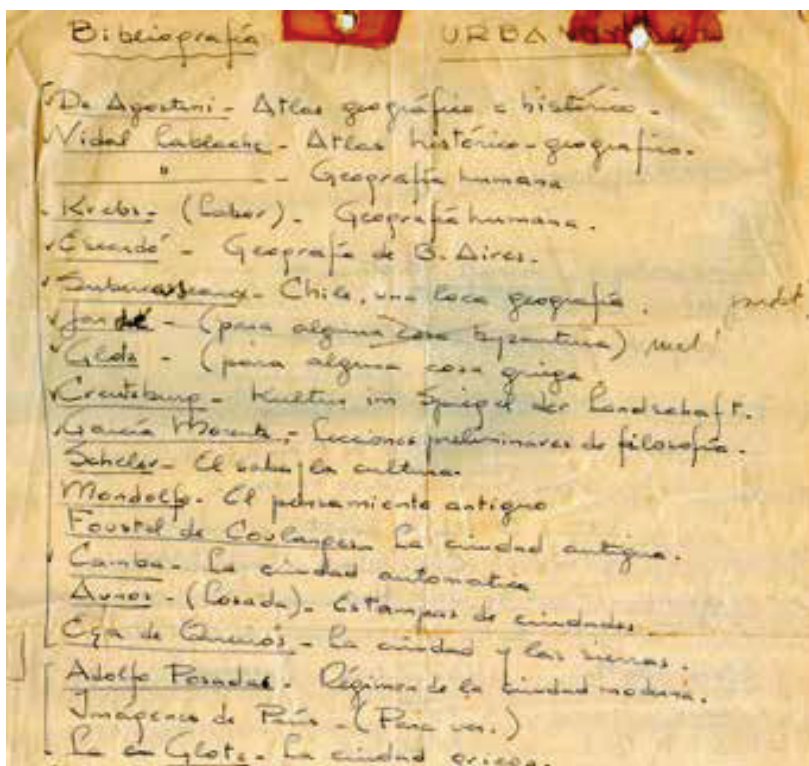 Bibliografía URBA
De Agostini - Atlas geográfico e histórico.
Vidal Lablache - Atlas histórico-geográfico.
" - Geografía humana
Krebs - (Labor) - Geografía humana.
Escardó - Geografía de B. Aires.
Subercaseaux - Chile, una loca geografía.
Jardé - (para alguna cosa byzantina)
Glotz - (para alguna cosa griega
Creutzburg - Kultur im Spiegel der Landschaft.
García Morente - Lecciones preliminares de filosofía.
Scheler - El saber y la cultura.
Mondolfo - El pensamiento antiguo
Foustel de Coulanges - La ciudad antigua.
Camba - La ciudad automatica
Aunos - (Losada) - Estampas de ciudades.
Eça de Queirós - La ciudad y las sierras.
Adolfo Posadas - Régimen de la ciudad moderna.
Imágenes de París - (Para ver.)
Glotz - La ciudad griega.